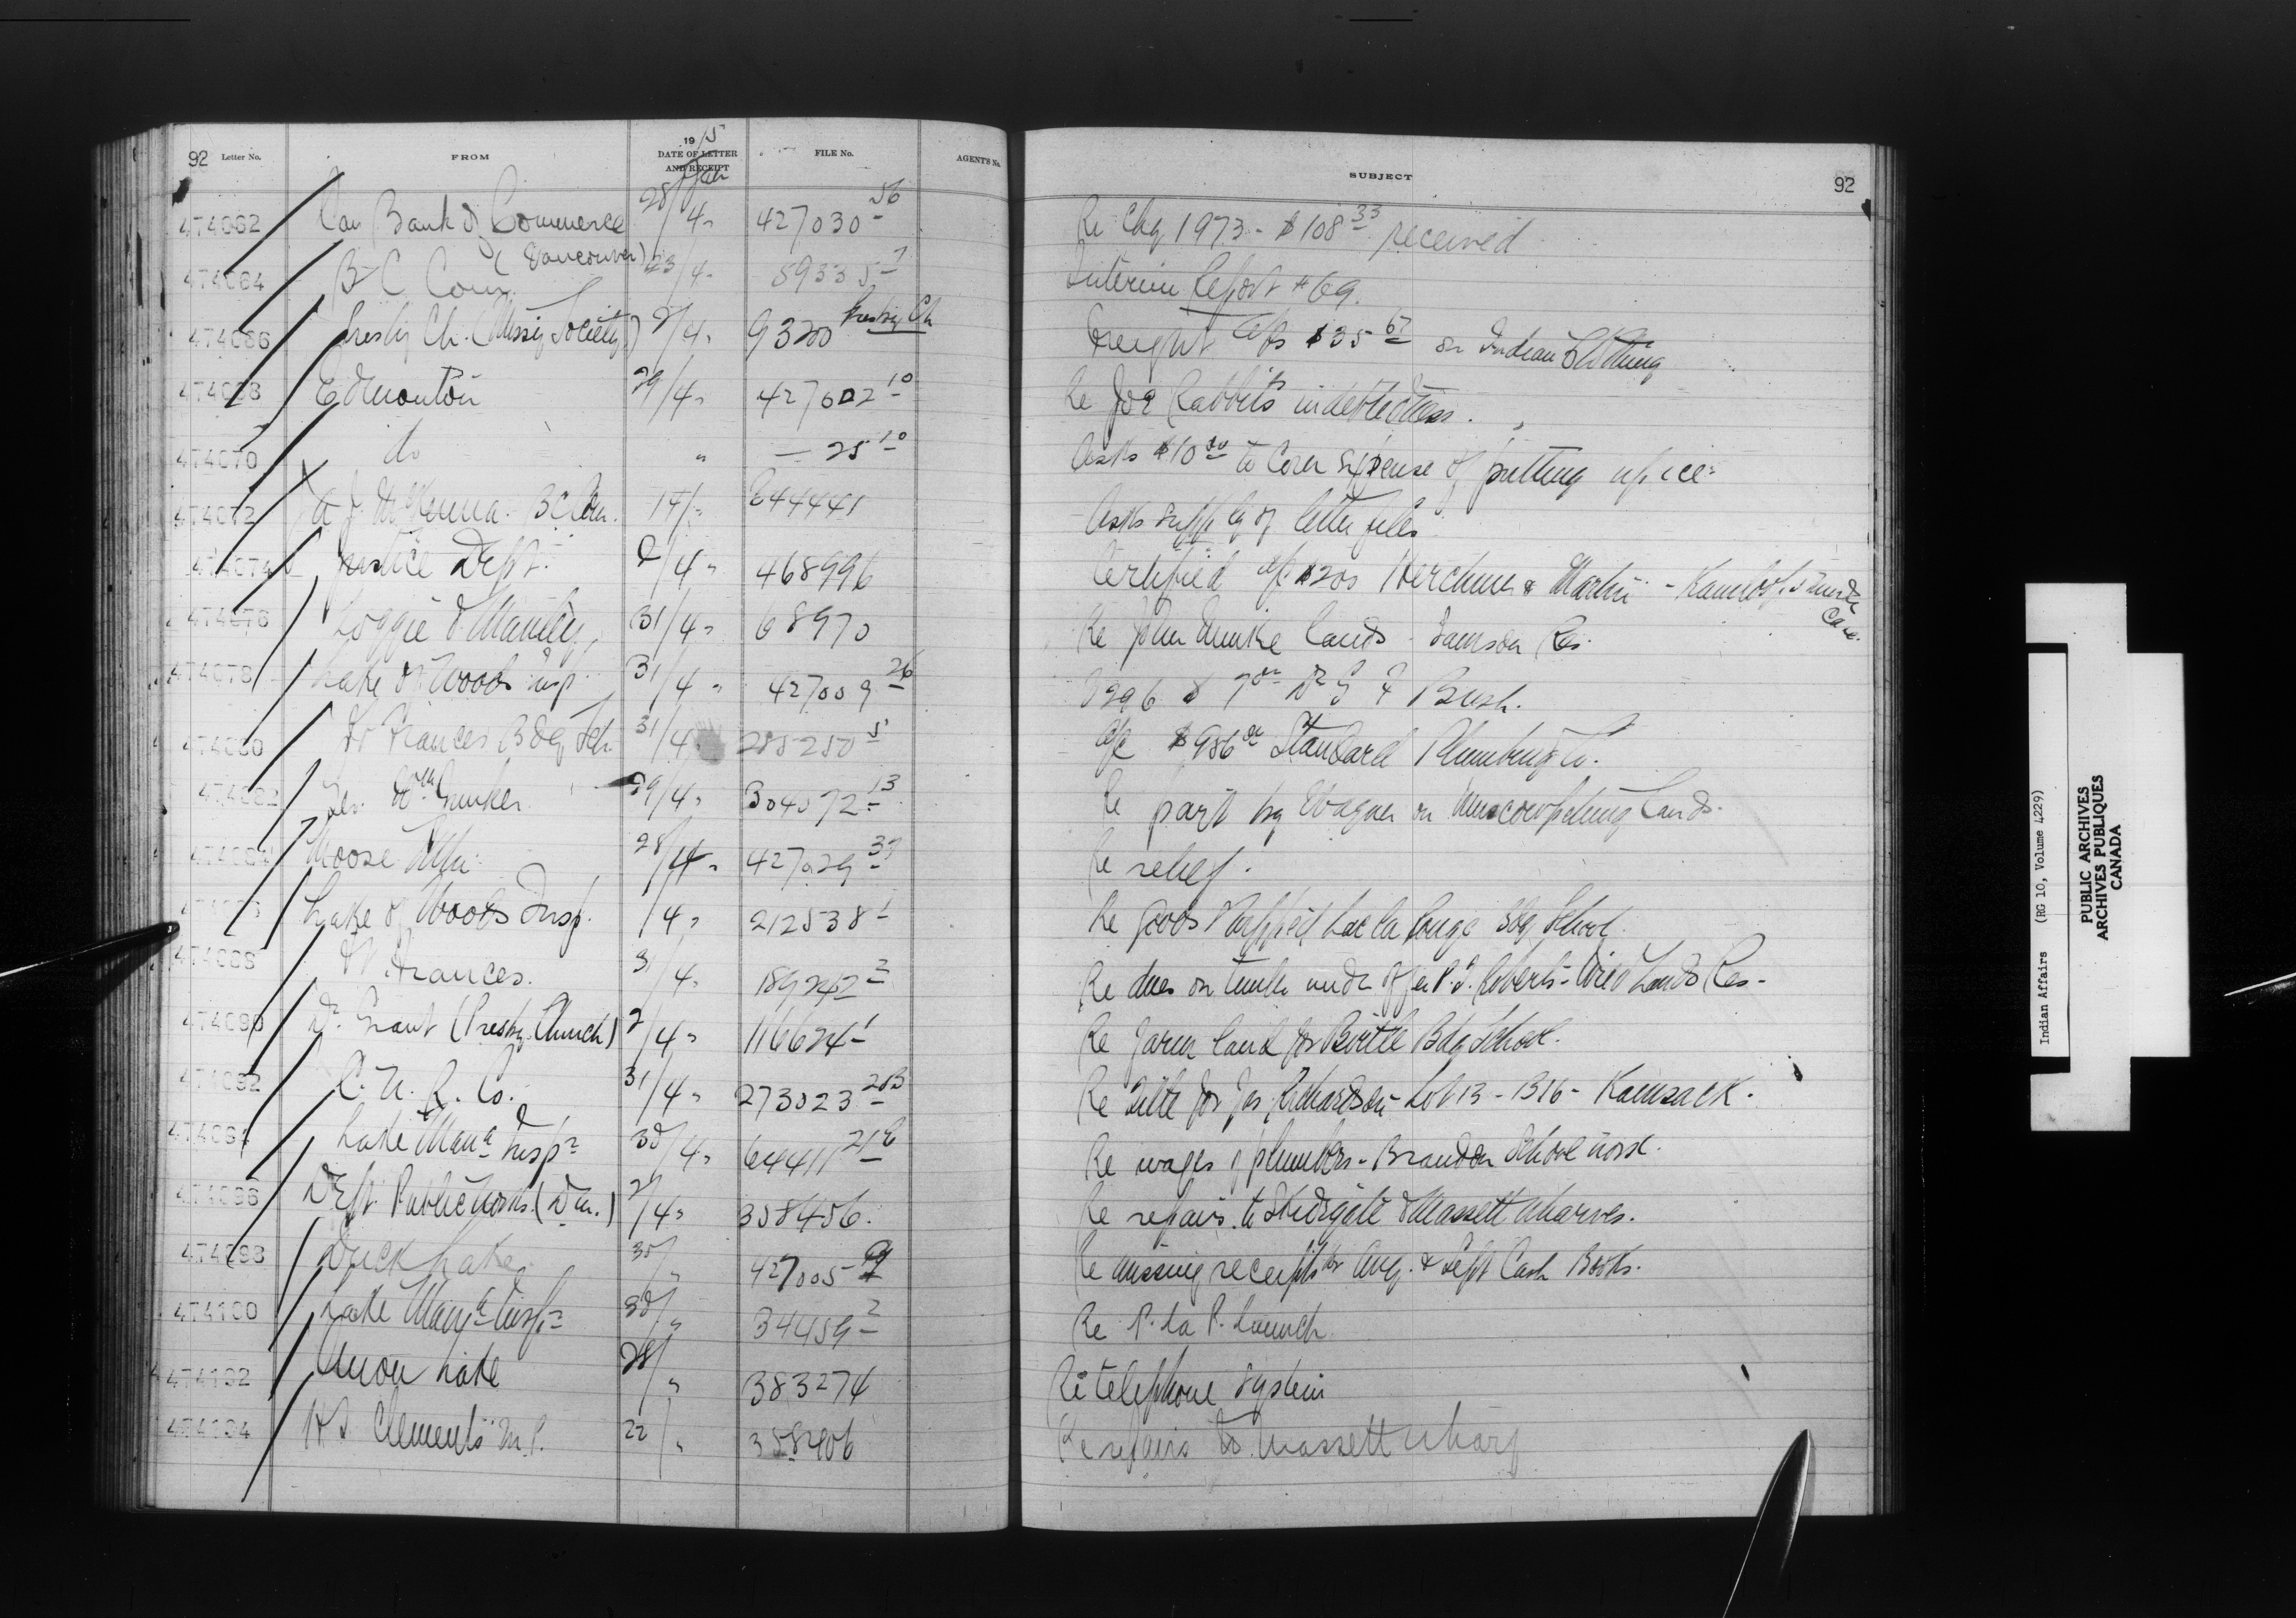 92 Letter No. FROM 1915 DATE OF LETTER AND RECEIPT FILE No. AGENT'S No. SUBJECT 92
474062 Can Bank of Commerce (Vancouver) 28/4 427030 56 Re Chq 1973 - $108 33 received
474064 B C Com. 23/4 59335 7 Interim Report #69.
474066 Presby Ch. (Missy Society) 2/4 9320 Presby Ch Freight $35 67 on Indian Clothing
474068 Edmonton 29/4 427602 10 Re Joe Rabbits indebtedness.
474070 do " — 25 10 Asks $10 00 to cover expense of putting up ice
474072 A J McKenna. BC Com. 644441 Asks supply of letter files
474074 Justice Dept. 2/4 468996 Certified a/c $200 & Martin - Kamloops Murder Case.
474076 Loggie & Manley 31/4 68970 Re John lands Samson Res.
474078 Lake of Woods Insp 31/4 427009 26 Bush.
474080 Ft Frances Bdg Sch 31/4 285250 5 a/c $986 Standard Plumbing Co.
474082 29/4 304072 13 Re part by Wagner on Muscowpetung lands.
474084 Moose Mtn 28/4 427029 37 Re relief.
Lake of Woods Insp. /4 212538 1 Re goods supplied Lac la Ronge Bdg School
474088 Ft. Frances. 31/4 189242 2 Re dues on timber under offer P.J. Roberts - Wild Lands Res-
474090 Dr. Grant (Presby. Church) 2/4 116624 1 Re farm land for Birtle Bdg School.
474092 C. N. R. Co. 31/4 273023 203 Re title for Jas Richardson - Lot 13 - B16 - Kamsack.
474094 Lake Mana Insp 30/4 64411 Re wages of plumbers - Brandon School
474096 Dept Public Works. 2/4 358456. Re repairs to Skidegate & Massett wharves.
474098 Duck Lake 30/ " 427005 Re missing receipts for Aug. & Sept Cash Books.
474100 Lake Mana Insp 30/ " 34459 2 Re P. La P. Launch
474102 Onion Lake 28/ " 383274 Re telephone system
474104 H S Clements M.P. 22/ " Re repairs to Massett wharf
Indian Affairs (RG 10, Volume 4229)
PUBLIC ARCHIVES
ARCHIVES PUBLIQUES
CANADA